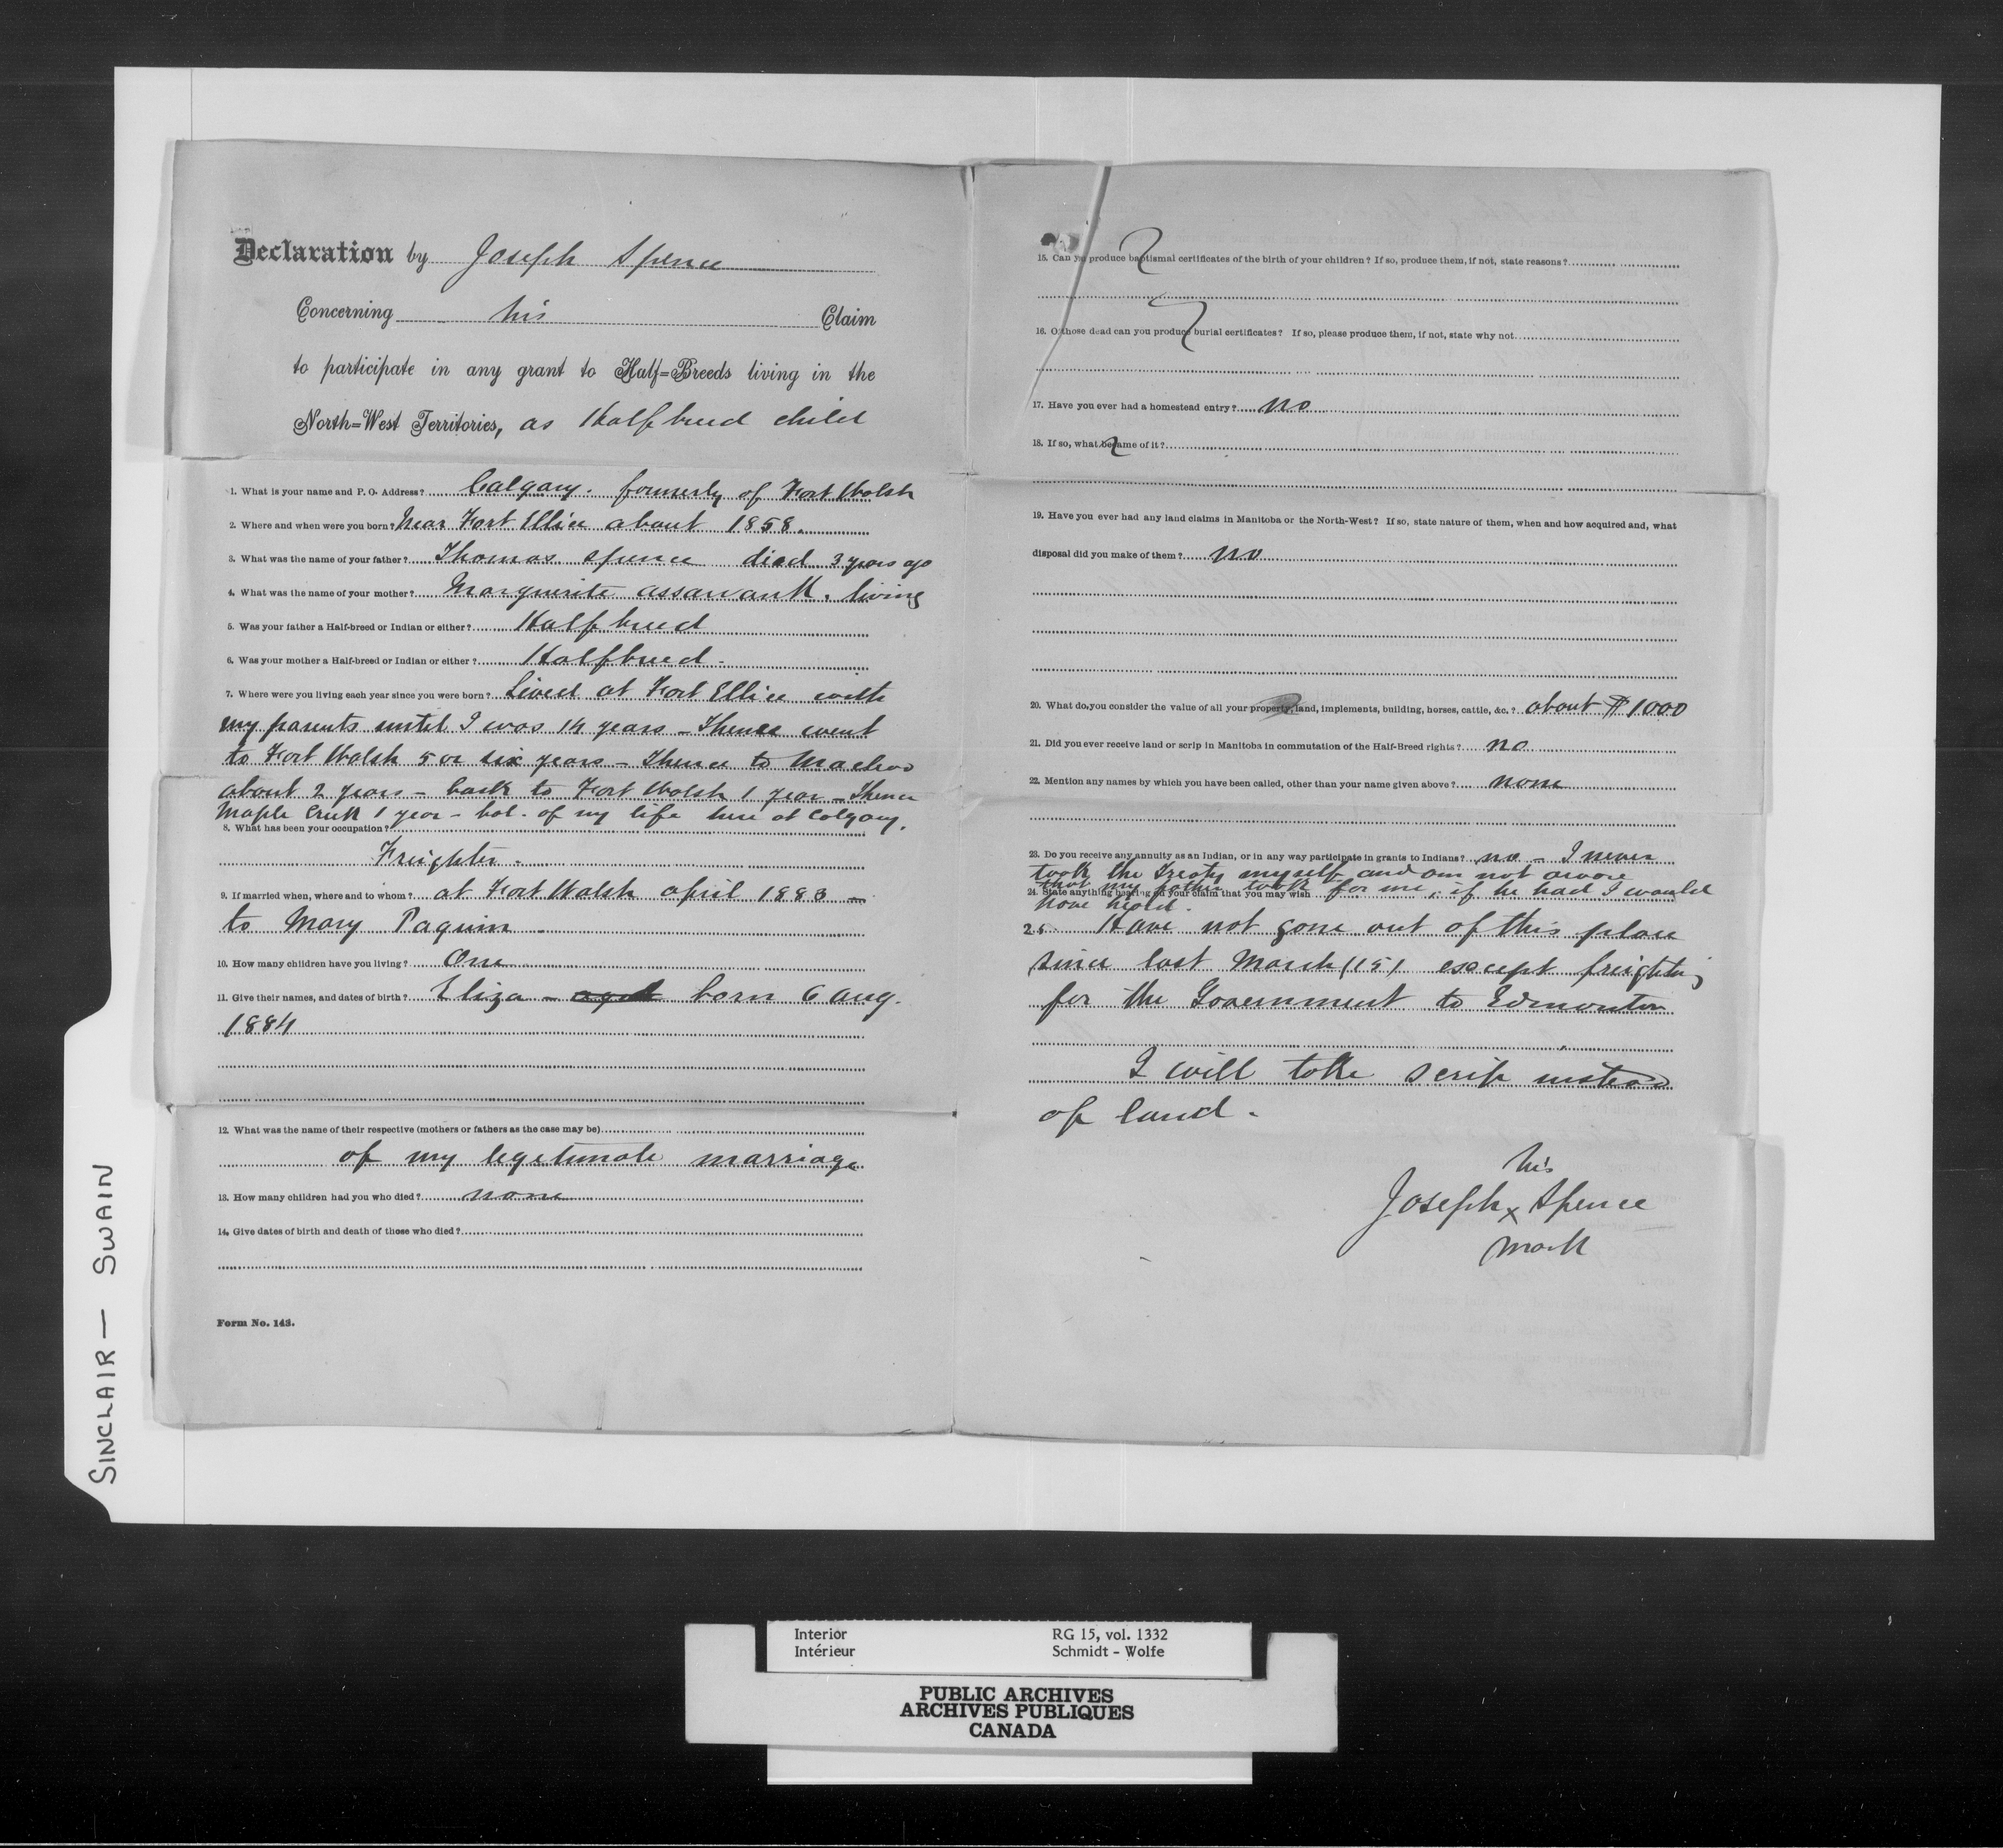 Declaration by Joseph Spence
Concerning his Claim
to participate in any grant to Half=Breeds living in the
North=West Territories, as Halfbreed child
1. What is your name and P. O. Address? Calgary. formerly of Fort Walsh
2. Where and when were you born? Near Fort Ellice about 1858.
3. What was the name of your father? Thomas Spence died 3 years ago
4. What was the name of your mother? Marguerite assawank. living
5. Was your father a Half-breed or Indian or either? Half breed
6. Was your mother a Half-breed or Indian or either? Halfbreed -
7. Where were you living each year since you were born? Lived at Fort Ellice with
my parents until I was 14 years - Thence went
to Fort Walsh 5 or six years - Thence to Macleod
about 2 years - back to Fort Walsh 1 year - Thence
Maple Creek 1 year - bal. of my life here at Calgary.
8. What has been your occupation?
Freighter -
9. If married when, where and to whom? at Fort Walsh april 1883 -
to Mary Paquin -
10. How many children have you living? One
11. Give their names, and dates of birth? Eliza - aged born 6 aug.
1884
12. What was the name of their respective (mothers or fathers as the case may be)
of my legetimate marriage
13. How many children had you who died? none
14. Give dates of birth and death of those who died?
Form No. 143.
15. Can you produce baptismal certificates of the birth of your children? If so, produce them, if not, state reasons?
16. Of those dead can you produce burial certificates? If so, please produce them, if not, state why not
17. Have you ever had a homestead entry? no
18. If so, what became of it?
19. Have you ever had any land claims in Manitoba or the North-West? If so, state nature of them, when and how acquired and, what
disposal did you make of them? no
20. What do you consider the value of all your property, land, implements, building, horses, cattle, &c.? about $1000
21. Did you ever receive land or scrip in Manitoba in commutation of the Half-Breed rights? no
22. Mention any names by which you have been called, other than your name given above? none
23. Do you receive any annuity as an Indian, or in any way participate in grants to Indians? no - I never
took the Treaty myself and am not aware
that my father took for me, if he had I would
24. State anything bearing on your claim that you may wish
have heard.
25. Have not gone out of this place
since last March (15) except freighting
for the Government to Edmonton
I will take scrip instead
of land -
his
Joseph x Spence
mark
SINCLAIR - SWAIN
Interior RG 15, vol. 1332
Intérieur Schmidt - Wolfe
PUBLIC ARCHIVES
ARCHIVES PUBLIQUES
CANADA